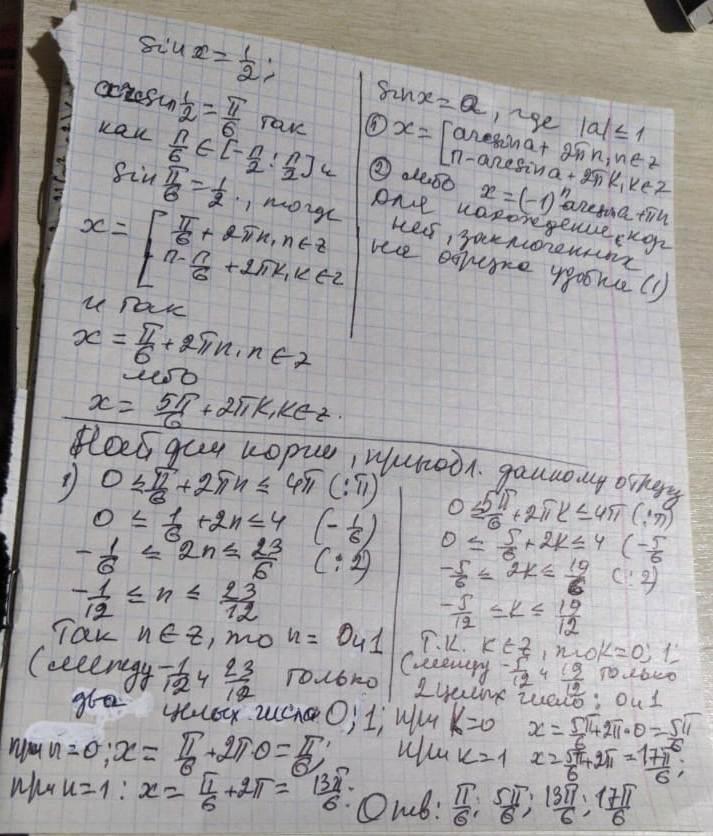 sin x = 1/2;
arcsin 1/2 = π/6 так
как π/6 ∈ [-π/2; π/2] и
sin π/6 = 1/2., тогда
x = [ π/6 + 2πn, n ∈ z
π - π/6 + 2πk, k ∈ z
и так
x = π/6 + 2πn, n ∈ z
либо
x = 5π/6 + 2πk, k ∈ z.
sin x = a, где |a| ≤ 1
① x = [ arcsin a + 2πn, n ∈ z
π - arcsin a + 2πk, k ∈ z
② либо x = (-1)ⁿ arcsin a + πn
для нахождение кор
ней, заключенных
на отрезке удобна (1)
Найдем корни, принадл. данному отрезку
1) 0 ≤ π/6 + 2πn ≤ 4π (:π)
0 ≤ 1/6 + 2n ≤ 4 (-1/6)
-1/6 ≤ 2n ≤ 23/6 (:2)
-1/12 ≤ n ≤ 23/12
Так n ∈ z, то n = 0 и 1
(между -1/12 и 23/12 только
два целых числа 0; 1;
при n = 0; x = π/6 + 2π·0 = π/6;
при n = 1: x = π/6 + 2π = 13π/6.
0 ≤ 5π/6 + 2πk ≤ 4π (:π)
0 ≤ 5/6 + 2k ≤ 4 (-5/6
-5/6 ≤ 2k ≤ 19/6 (:2)
-5/12 ≤ k ≤ 19/12
Т.К. k ∈ z, то k = 0; 1;
(между -5/12 и 19/12 только
2 целых число; 0 и 1
при k = 0 x = 5π/6 + 2π·0 = 5π/6
при k = 1 x = 5π/6 + 2π = 17π/6;
Отв: π/6; 5π/6; 13π/6; 17π/6